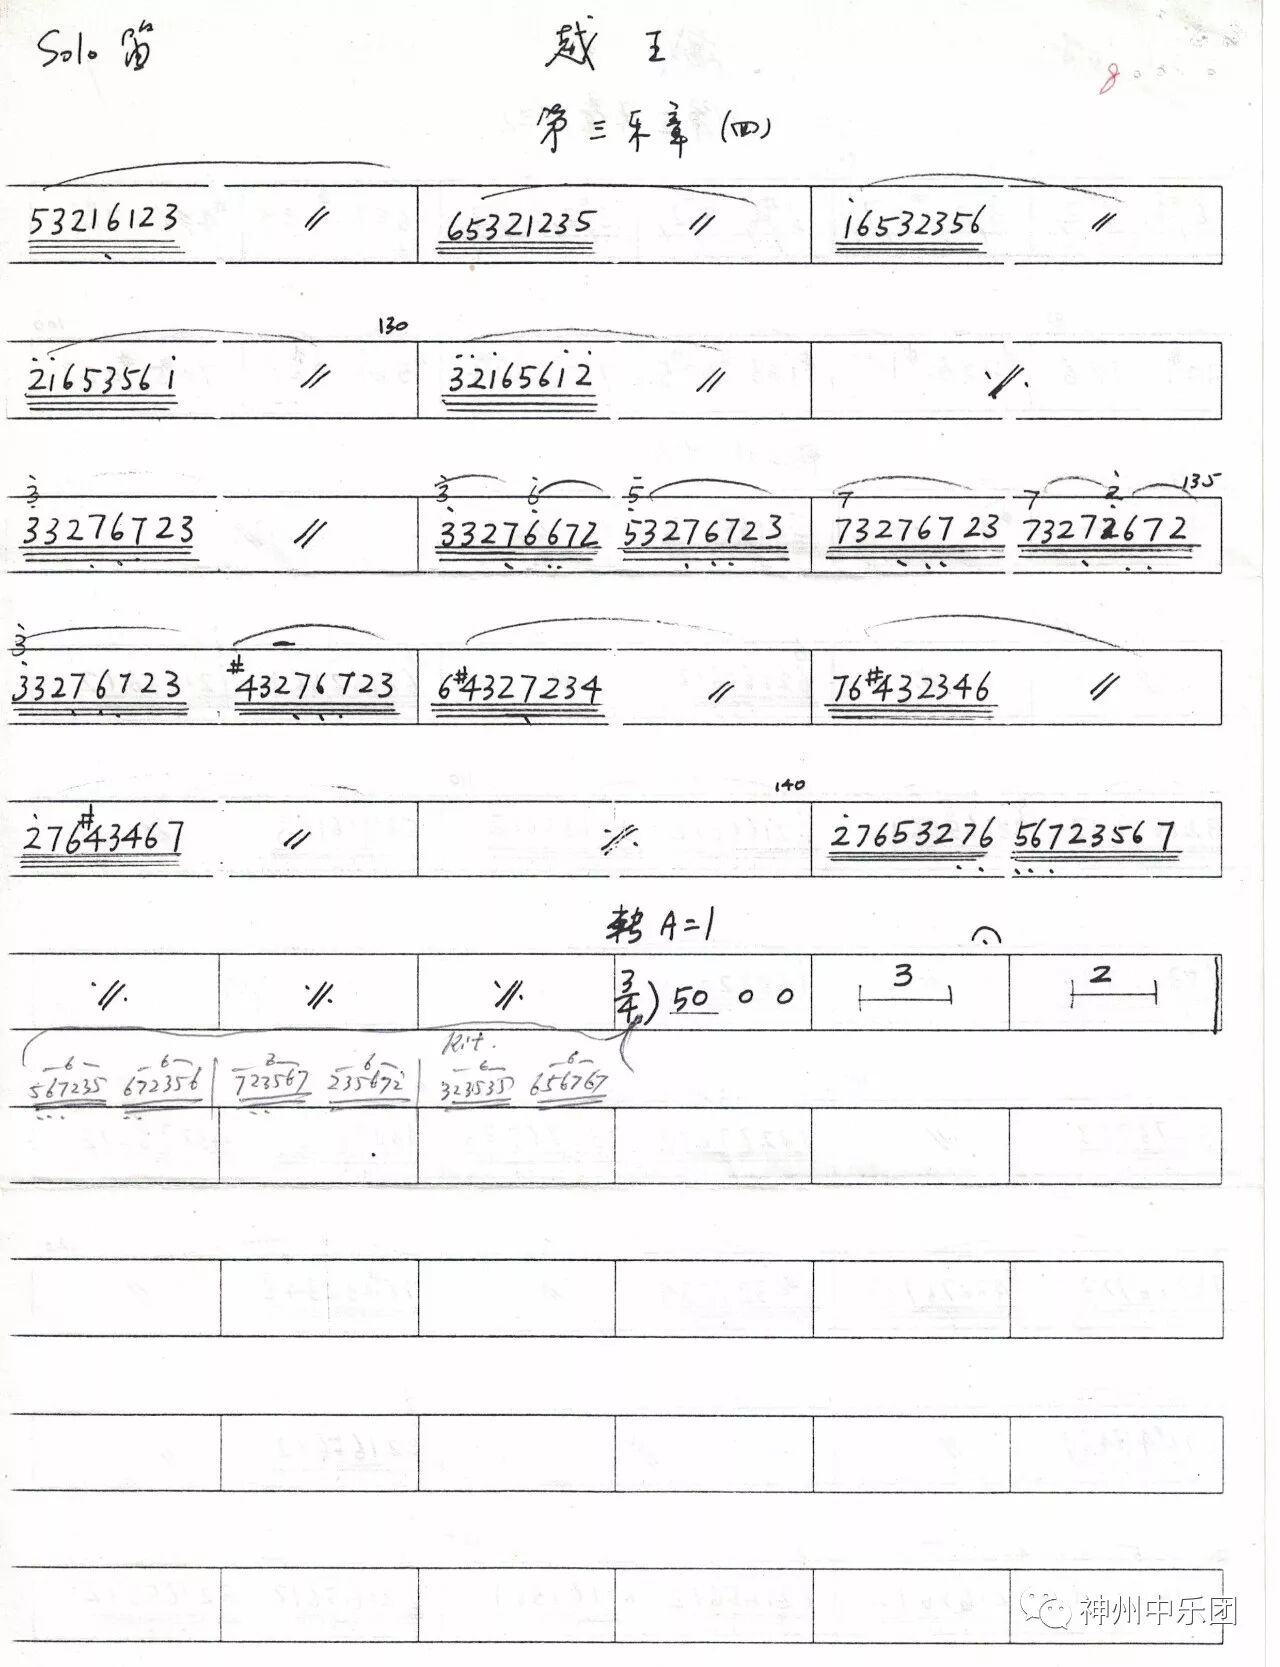 Solo 笛
越王
8
第三乐章(四)
53216123 〃 65321235 〃 16532356 〃
130
21653561 〃 32165612 〃 ·//.
3 3 6 5 7 7 2 135
33276723 〃 33276672 53276723 73276723 73272672
3
33276723 #43276723 6#4327234 〃 76#432346 〃
140
276#43467 〃 ·//. 27653276 56723567
转 A=1
·//. ·//. ·//. 3/4) 50 0 0 3 2
Rit.
6 6 3 6 6 6
567235 672356 723567 235672 323535 656767
神州中乐团